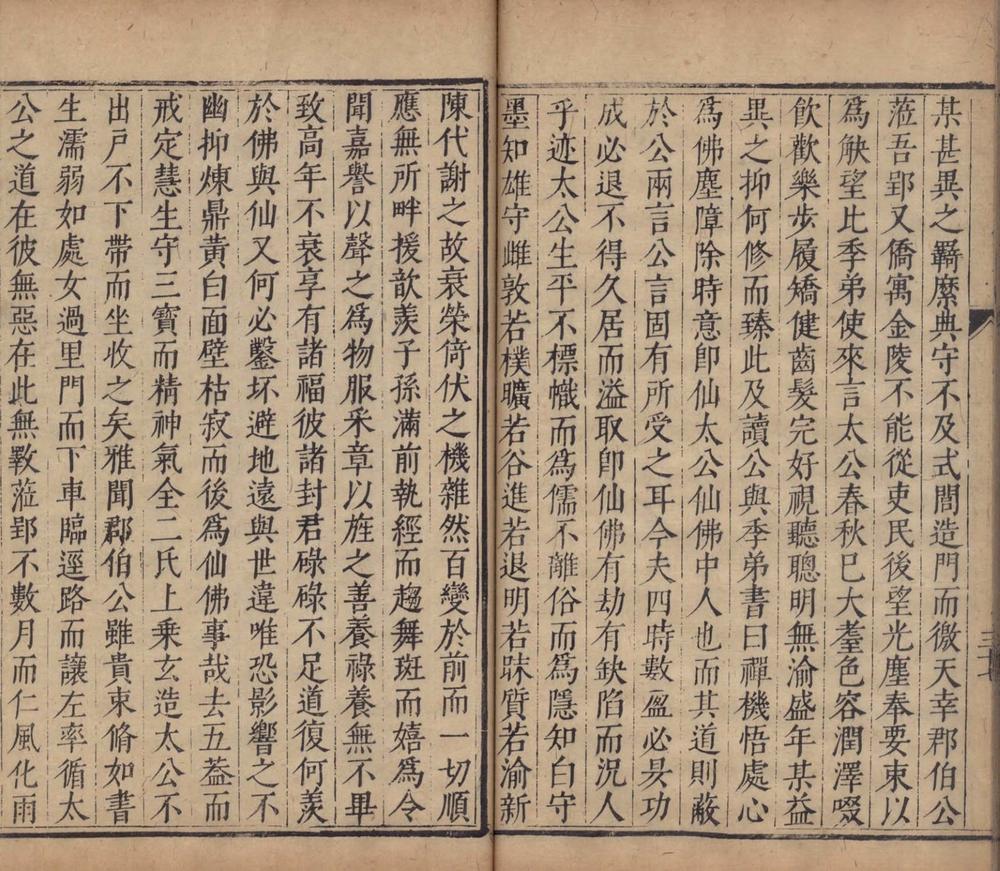 某甚異之羈縻典守不及式閭造門而徼天幸郡伯公
蒞吾郢又僑寓金陵不能從吏民後望光塵奉要束以
為觖望比季弟使來言太公春秋巳大耋色容潤澤啜
飲歡樂步履矯健齒髮完好視聽聰明無渝盛年某益
異之抑何修而臻此及讀公與季弟書曰禪機悟處心
為佛塵障除時意卽仙太公仙佛中人也而其道則蔽
於公兩言公言固有所受之耳今夫四時數盈必昃功
成必退不得久居而溢取卽仙佛有劫有缺陷而況人
乎迹太公生平不標幟而為儒不離俗而為隱知白守
墨知雄守雌敦若樸曠若谷進若退明若昧質若渝新
陳代謝之故衰榮倚伏之機雜然百變於前而一切順
應無所畔援歆羨子孫滿前執經而趨舞斑而嬉為令
聞嘉譽以聲之為物服采章以旌之善養祿養無不畢
致高年不衰享有諸福彼諸封君碌碌不足道復何羨
於佛與仙又何必鑿坏避地遠與世違唯恐影響之不
幽抑煉鼎黃白面壁枯寂而後為仙佛事哉去五葢而
戒定慧生守三寶而精神氣全二氏上乘玄造太公不
出戶不下帶而坐收之矣雅聞郡伯公雖貴束脩如書
生濡弱如處女過里門而下車臨逕路而讓左率循太
公之道在彼無惡在此無斁蒞郢不數月而仁風化雨
三十七